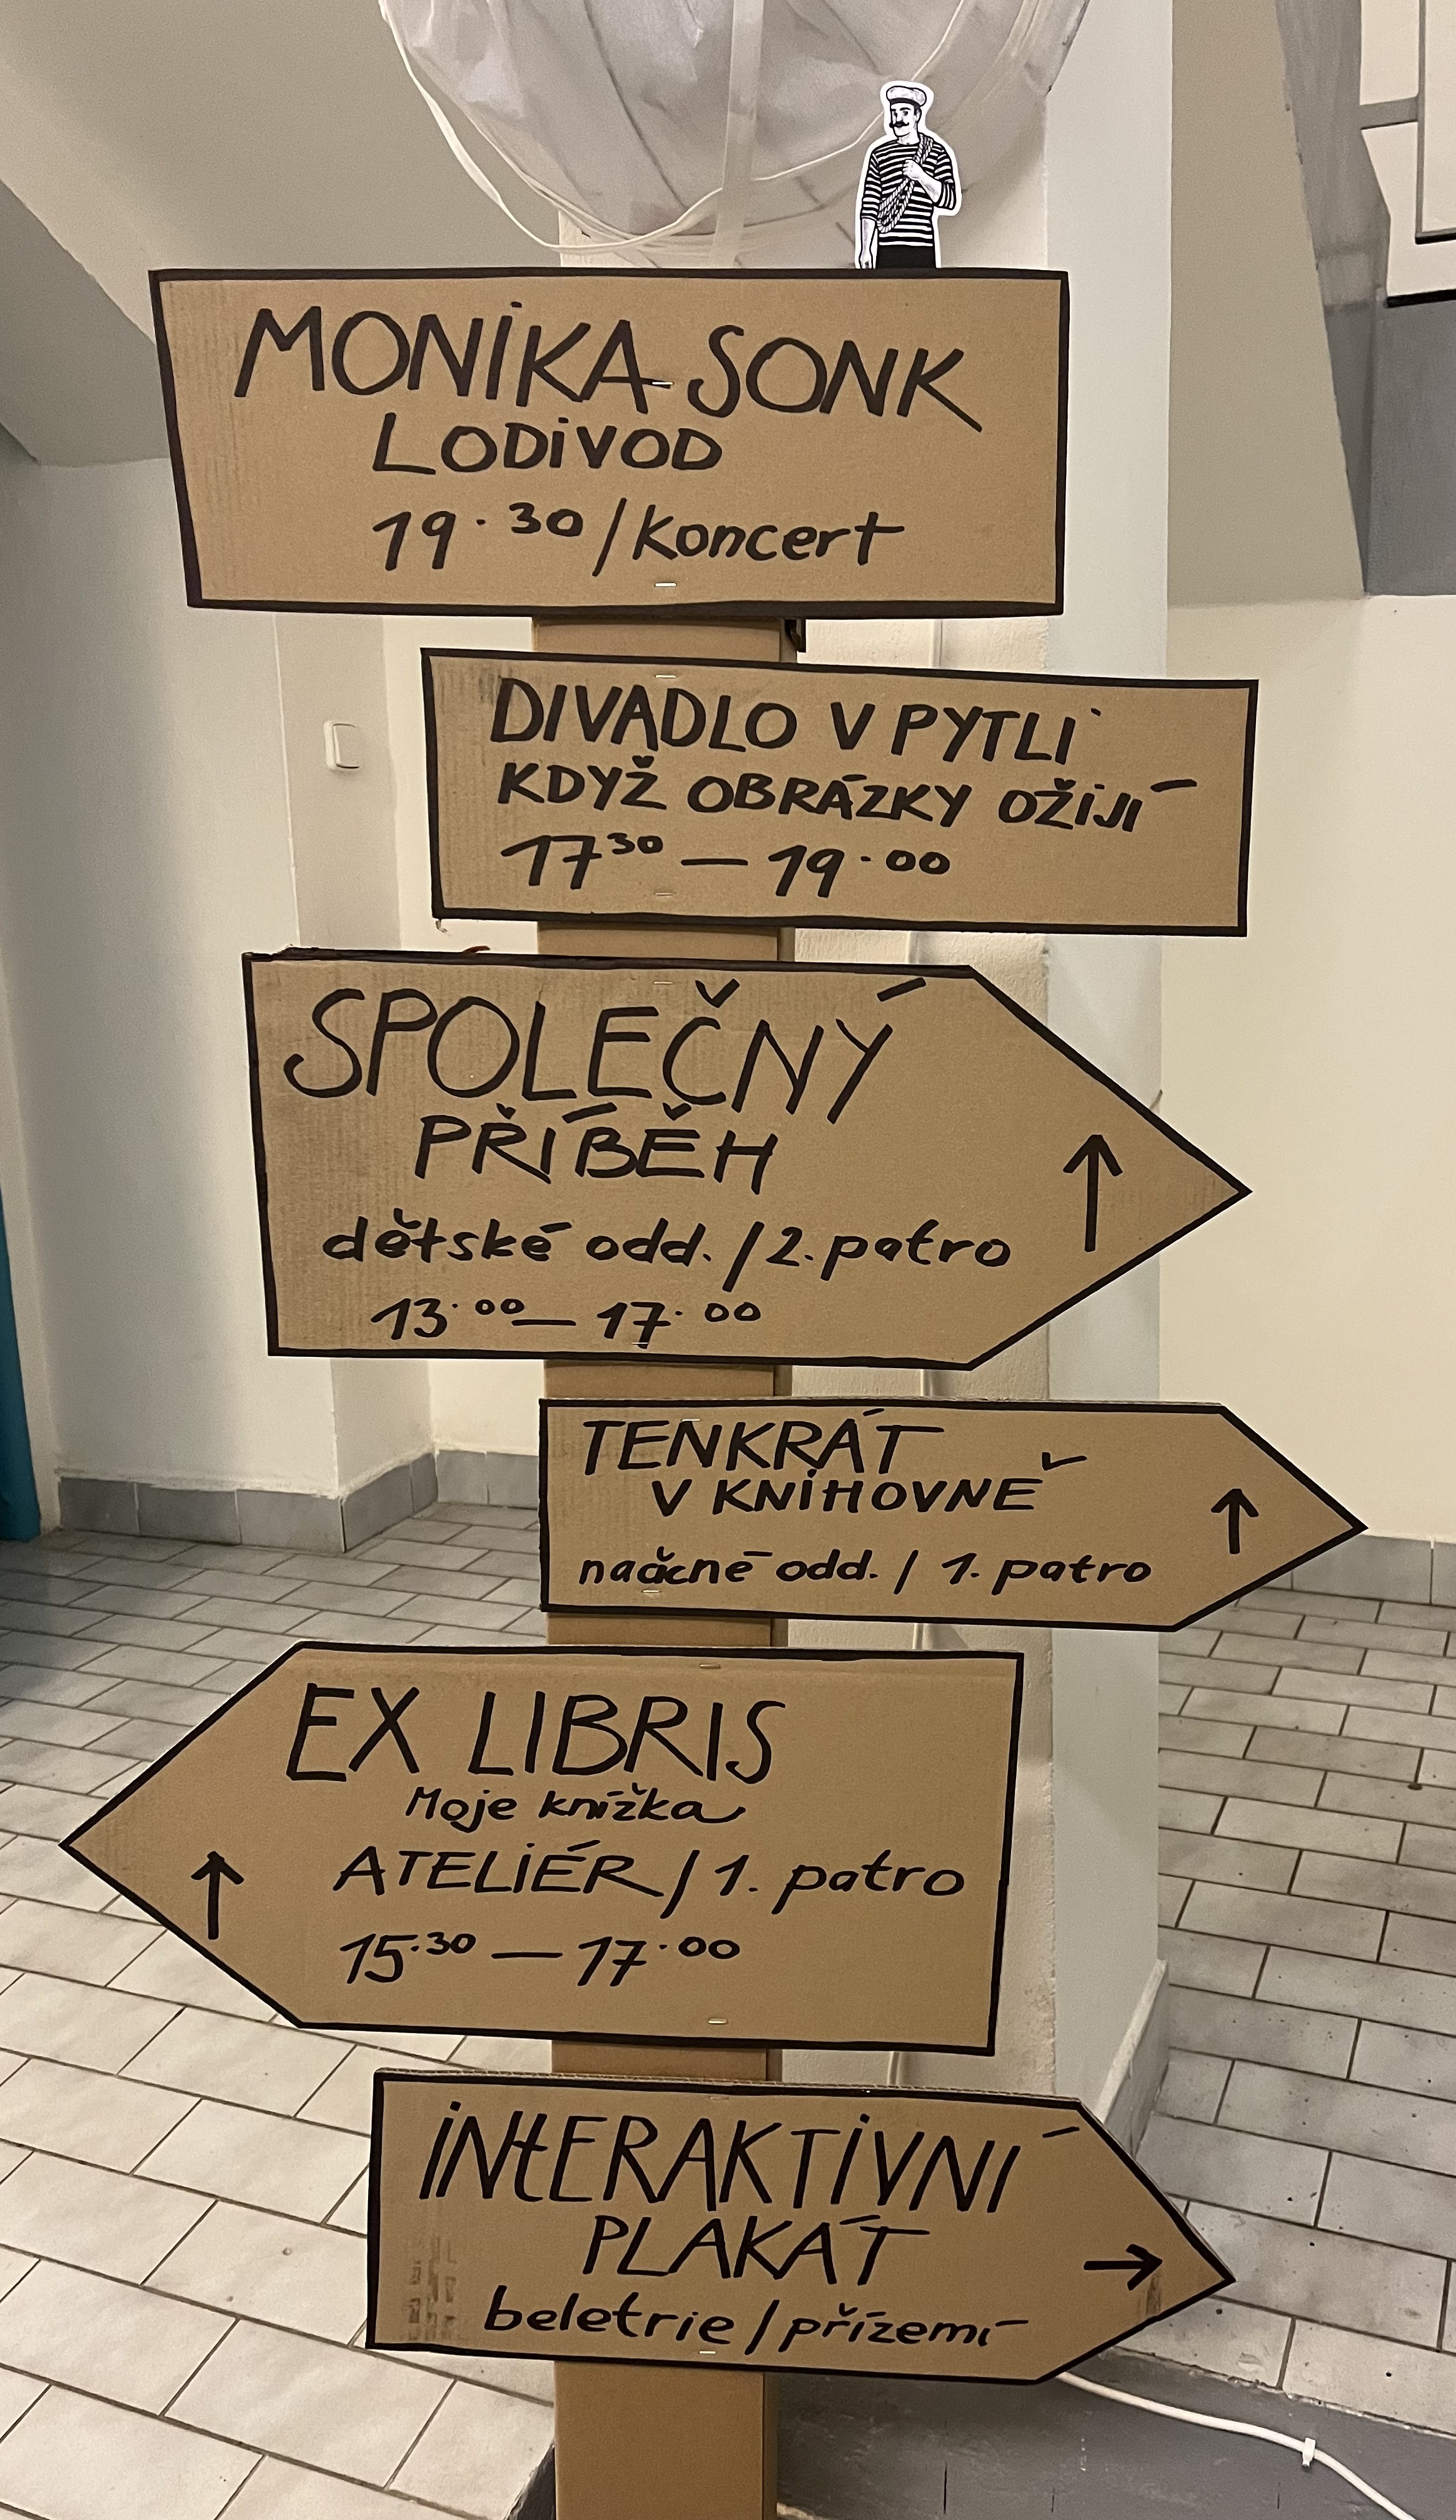 MONIKA SONK
LODIVOD
19.30/Koncert
DIVADLO V PYTLI
KDYŽ OBRÁZKY OŽIJÍ
17 30 — 19.00
SPOLEČNÝ
PŘÍBĚH
dětské odd. / 2. patro
13.00 — 17.00
TENKRÁT
V KNIHOVNĚ
odd. / 1. patro
EX LIBRIS
Moje knížka
ATELIÉR / 1. patro
15.30 — 17.00
INtERAKTIVNÍ
PLAKÁT
beletrie / přízemí